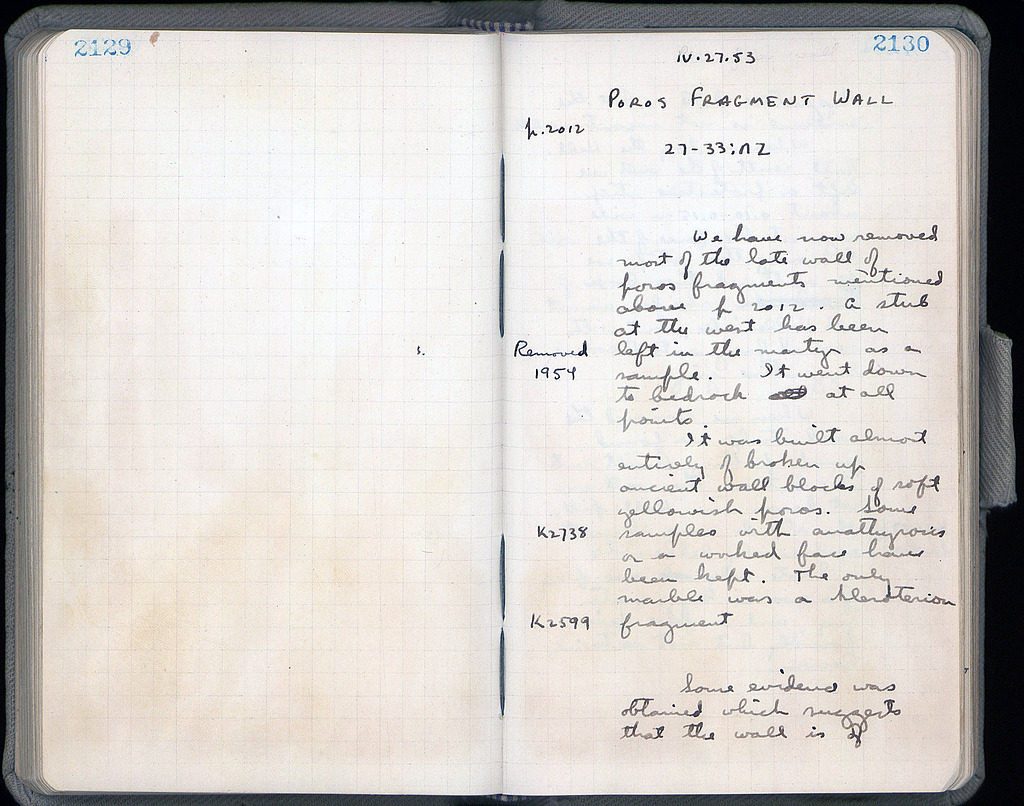 2129
2130
IV.27.53
POROS FRAGMENT WALL
p. 2012
27-33:ΛZ
We have now removed
most of the late wall of
poros fragments mentioned
above p 2012. A stub
at the west has been
Removed left in the martyr as a
1954 sample. It went down
to bedrock at all
points.
It was built almost
entirely of broken up
ancient wall blocks of soft
yellowish poros. Some
K2738 samples with anathyrosis
or a worked face have
been kept. The only
marble was a kleroterion
K2599 fragment
Some evidence was
obtained which suggests
that the wall is of